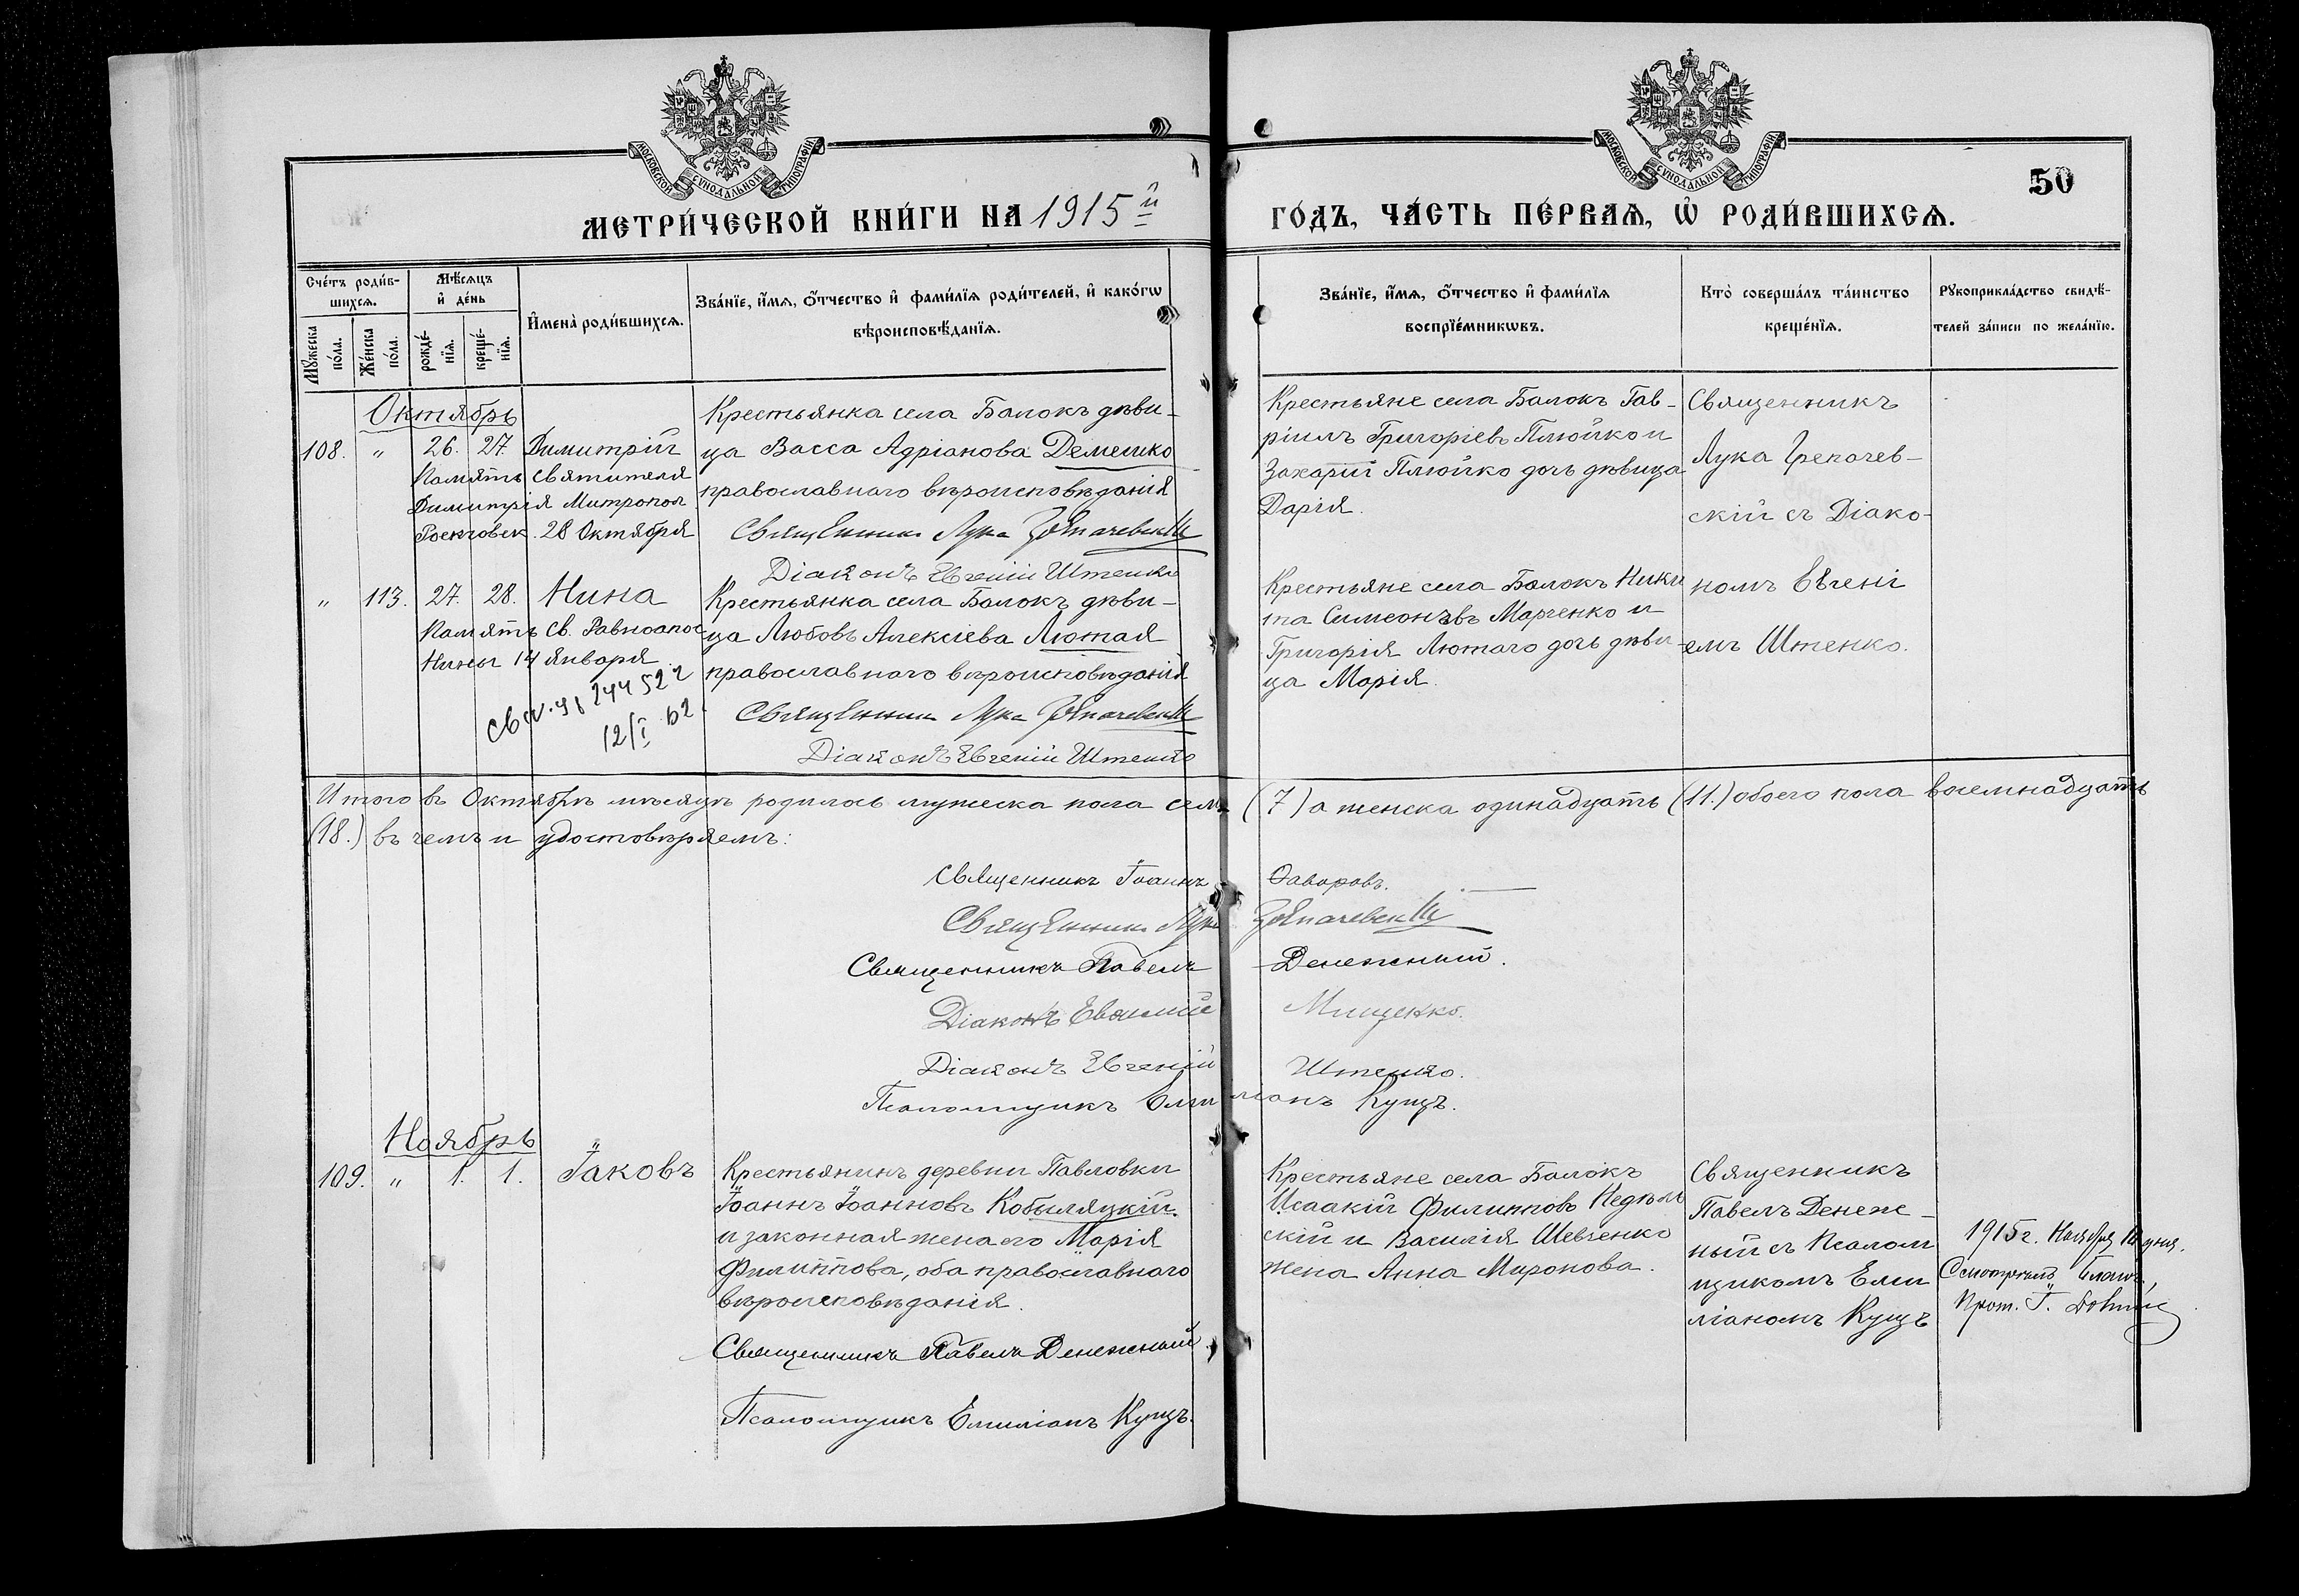 МОСКОВСКОЙ СѴНОДАЛЬНОЙ ТИПОГРАФІИ
МОСКОВСКОЙ СѴНОДАЛЬНОЙ ТИПОГРАФІИ
50
МЕТРИ́ЧЕСКОЙ КНИ́ГИ НА 1915й
ГО́ДЪ, ЧА́СТЬ ПЕ́РВАѦ, Ѡ҆ РОДИ́ВШИХСѦ.
Сче́тъ роди́в-
шихсѧ.
Мꙋ́жеска
по́ла.
Же́нска
по́ла.
Мѣ́сѧцъ
и҆ де́нь
рожде́-
нїѧ.
креще́-
нїѧ.
И҆мена̀ роди́вшихсѧ.
Зва́нїе, и҆́мѧ, ѻ҆́тчество и҆ фами́лїѧ роди́телей, и҆ како́гѡ
вѣроисповѣ́данїѧ.
Зва́нїе, и҆́мѧ, ѻ҆́тчество и҆ фами́лїѧ
воспрїе́мникѡвъ.
Кто̀ соверша́лъ та́инство
креще́нїѧ.
Рꙋкоприкла́дство свидѣ́-
телей за́писи по жела́нїю.
Октябрь
108. " 26. 27. Димитрій
Память Святителя
Димитрія Митропол
Ростовск. 28 Октября
Крестьянка села Балокъ дѣви-
ца Васса Адріанова Демешко
православнаго вѣроисповѣданія
Священник Лука
Діаконъ Евгеній Штенко
Крестьяне села Балокъ Гав-
ріилъ Григоріевъ Плюйко и
Захарій Плюйко дочь дѣвица
Дарія.
Священникъ
Лука
скій съ Діако-
номъ Евгені
емъ Штенко.
" 113. 27. 28. Нина
Память Св. Равноапос
Нины 14 января
12/I 62
Крестьянка села Балокъ дѣви-
ца Любовь Алексіева Лютая
православнаго вѣроисповѣданія
Священник Лука
Діаконъ Евгеній Штенко
Крестьяне села Балокъ Ники
та Симеоновъ Марченко и
Григорія Лютаго дочь дѣви-
ца Марія.
Итого въ Октябрѣ мѣсяцѣ родилось мужеска пола семь (7) а женска одинадцать (11.) обоего пола восемнадцать
(18.) въ чемъ и удостовѣряемъ:
Священникъ Іоаннъ Ѳаворовъ.
Священник Лука
Священникъ Павелъ Денежный.
Діаконъ Мищенко.
Діаконъ Евгеній Штенко.
Псаломщикъ Емиліанъ Кущъ.
Ноябрь
109. " 1. 1. Іаковъ
Крестьянинъ деревни Павловки
Іоаннъ Іоанновъ Кобыляцкій
и законная жена его Марія
Филиппова, оба православнаго
вѣроисповѣданія.
Священникъ Павелъ Денежный.
Псаломщикъ Емиліанъ Кущъ.
Крестьяне села Балокъ
Исаакій Филипповъ
скій и Василія Шевченко
жена Анна Миронова.
Священникъ
Павелъ Денеж-
ный съ Псалом
щикомъ Еми
ліаномъ Кущъ
1915 г. Ноября
Прот. І.